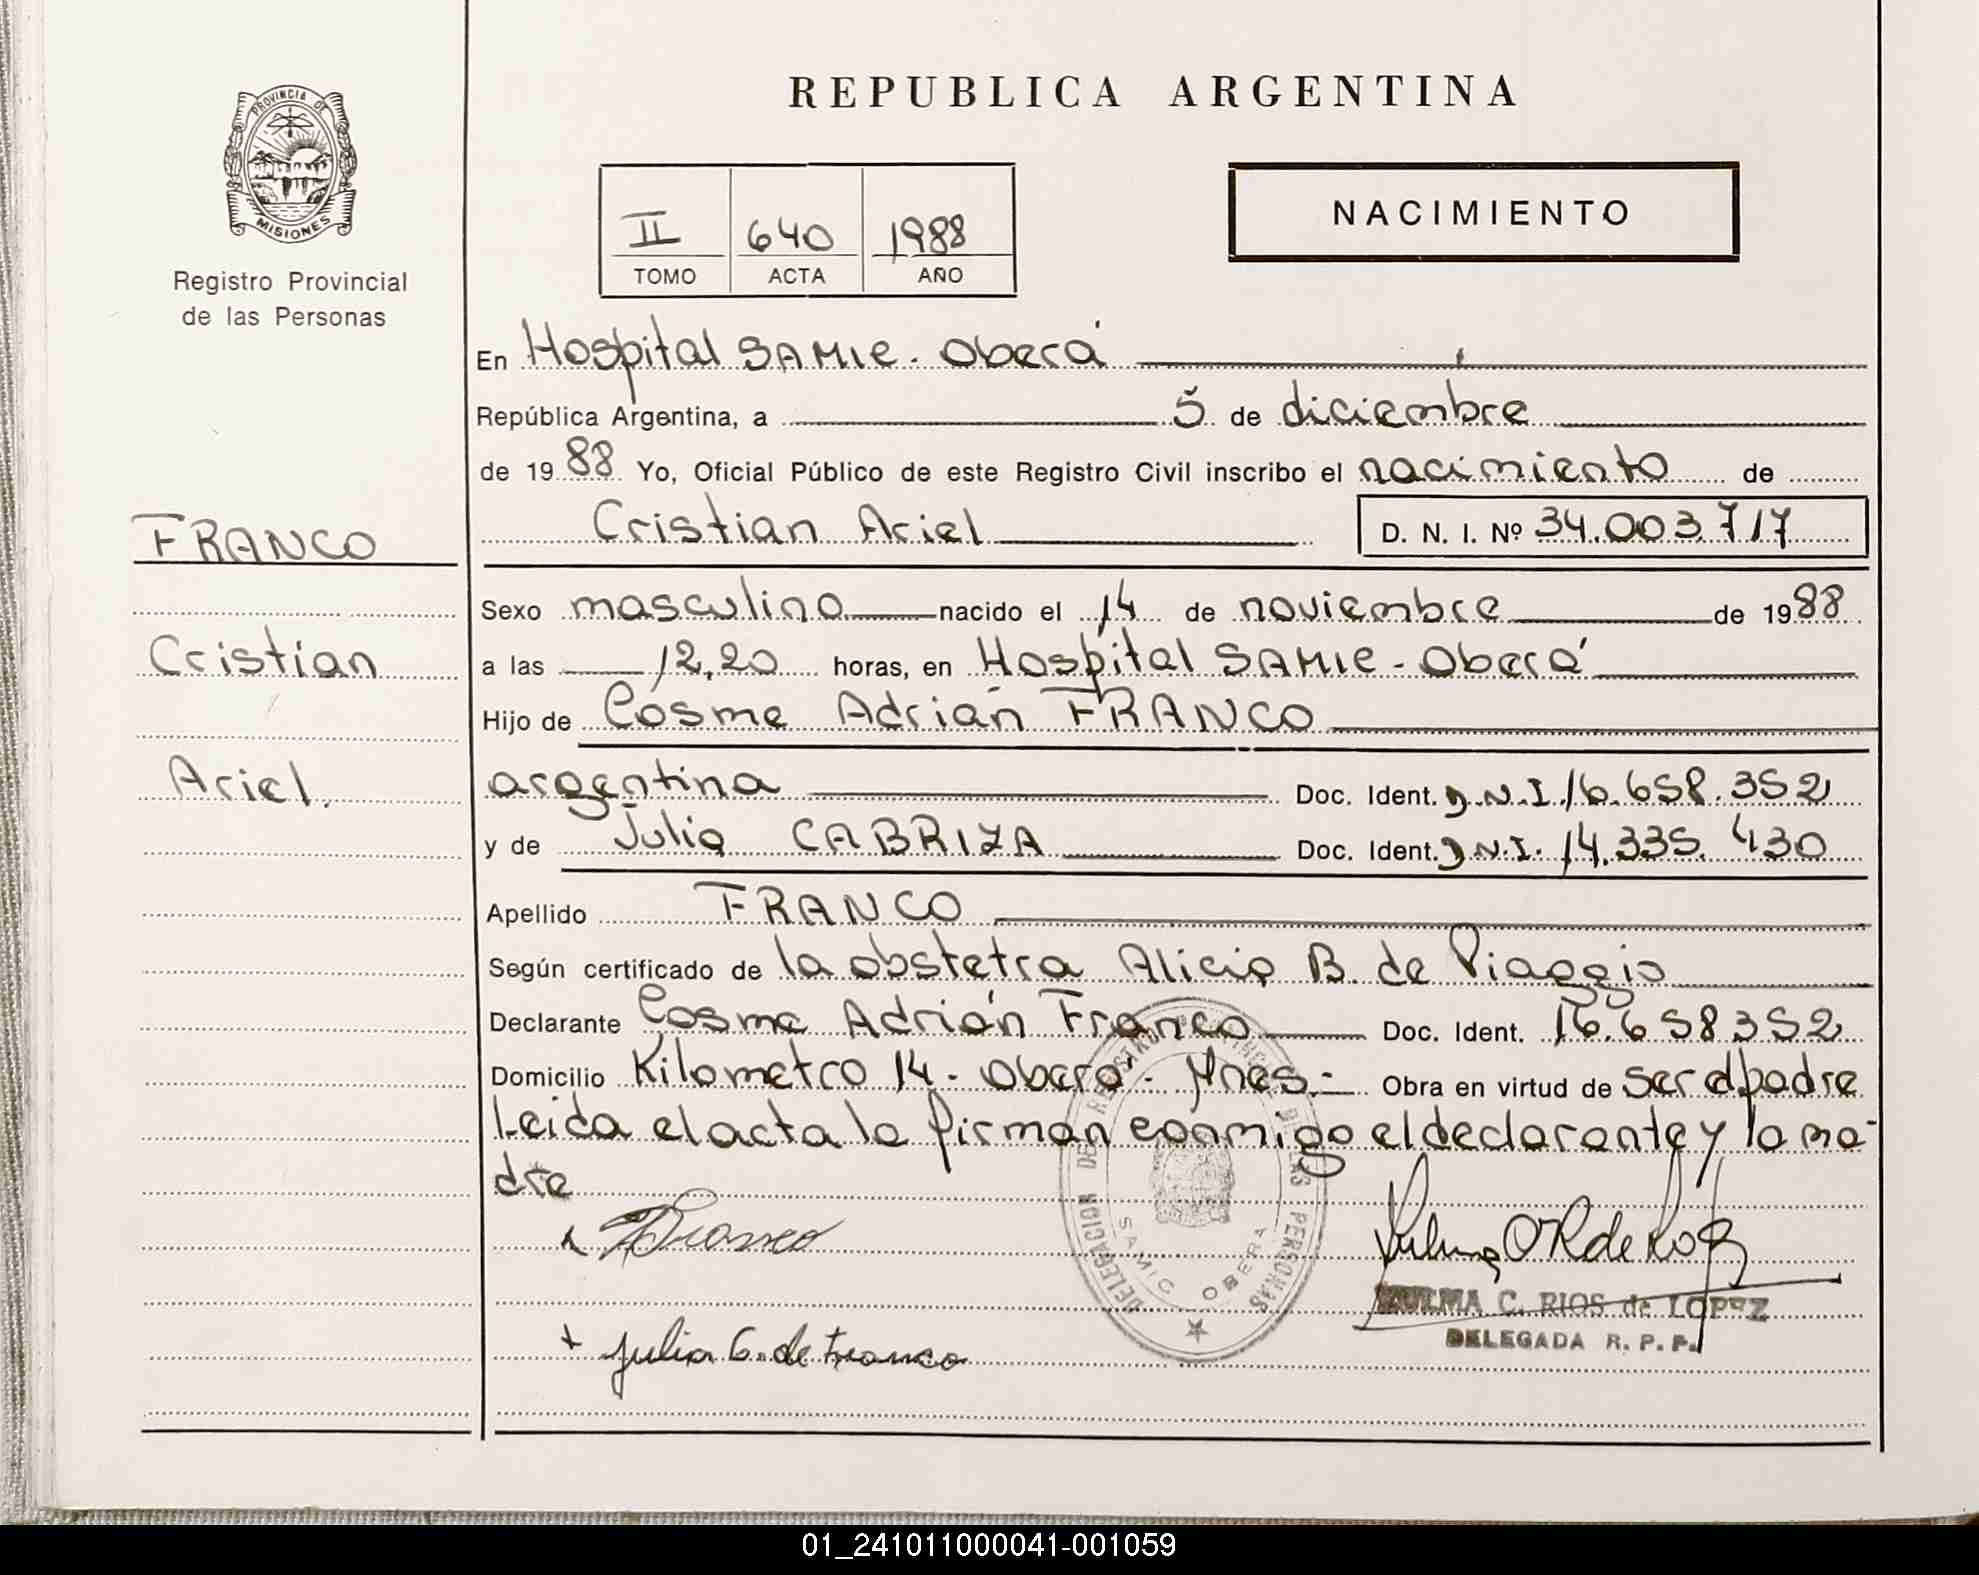 PROVINCIA DE
MISIONES
Registro Provincial
de las Personas
REPUBLICA ARGENTINA
II 640 1988
TOMO ACTA AÑO
NACIMIENTO
En Hospital SAMIC - Oberá
República Argentina, a 5 de diciembre
de 1988 Yo, Oficial Público de este Registro Civil inscribo el nacimiento de
Cristian Ariel D. N. I. Nº 34.003.717
FRANCO
Cristian
Ariel.
Sexo masculino nacido el 14 de noviembre de 1988
a las 12,20 horas, en Hospital SAMIC - Oberá
Hijo de Cosme Adrián FRANCO
argentina Doc. Ident. D.N.I. 16.658.352
y de Julia CABRIZA Doc. Ident. D.N.I. 14.335.430
Apellido FRANCO
Según certificado de la obstetra Alicia B. de Piaggio
Declarante Cosme Adrián Franco Doc. Ident. 16.658352
Domicilio Kilometro 14 - Oberá - Mnes.- Obra en virtud de ser el padre
Leida el acta la firman conmigo el declarante y la ma-
dre
Franco
Julia C. de Franco
DELEGACION DEL REGISTRO PROVINCIAL DE LAS PERSONAS
SAMIC OBERA
ZULMA C. RIOS de LOPEZ
DELEGADA R. P. P.
01_241011000041-001059